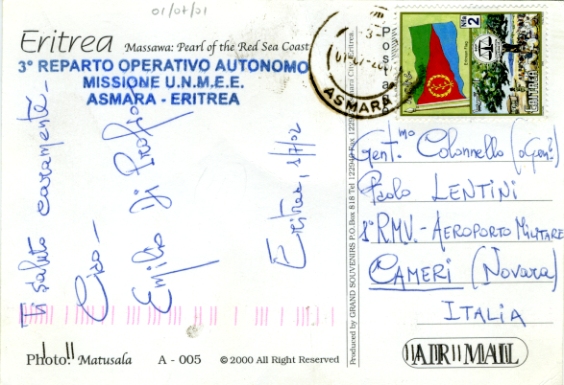 01/07/01
Eritrea Massawa: Pearl of the Red Sea Coast
3° REPARTO OPERATIVO AUTONOMO
MISSIONE U.N.M.E.E.
ASMARA - ERITREA
Ti saluto caramente -
Ciao -
Emilio Di
Eritrea, 1/7/02
Photo: Matusala A - 005 © 2000 All Right Reserved
Produced by GRAND SOUVENIRS P.O.Box 818 Tel 122949 Asmara City Eritrea
Postcard
ASMARA
Nfa 2
Eritrean Flag
ERITREA
Gent.mo Colonnello
Paolo LENTINI
1° RMV. - AEROPORTO MILITARE
CAMERI (Novara)
ITALIA
AIR MAIL